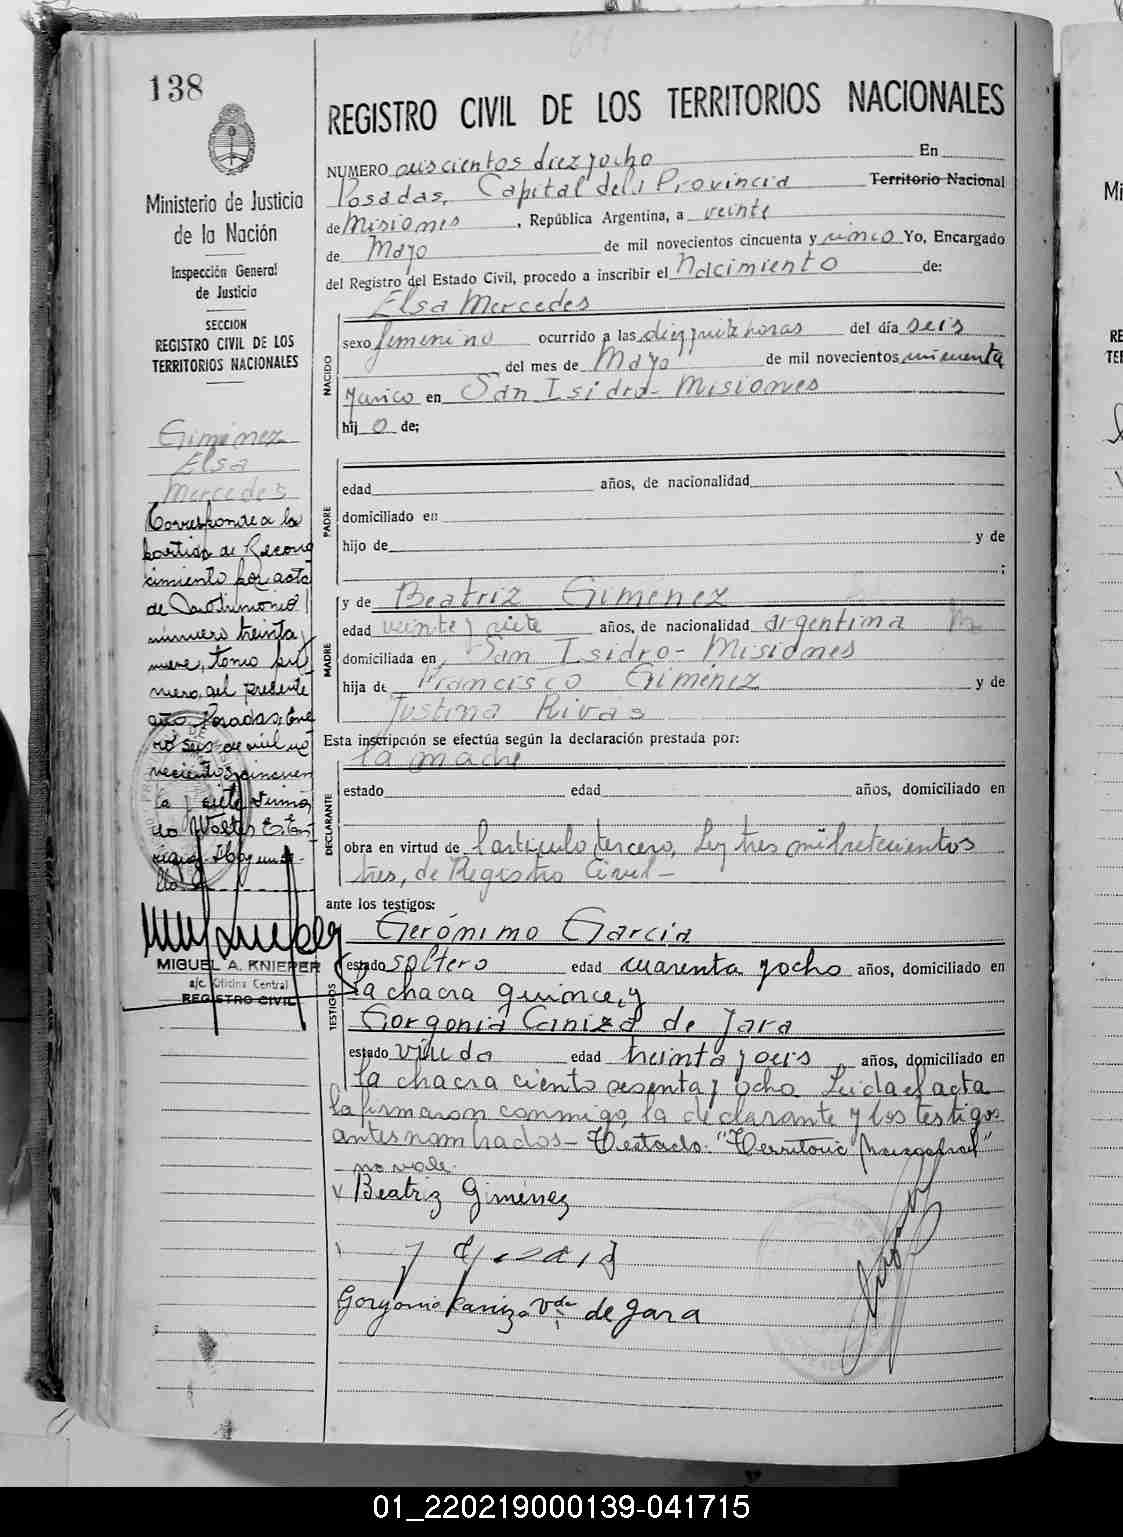 138
REGISTRO CIVIL DE LOS TERRITORIOS NACIONALES
Ministerio de Justicia
de la Nación
Inspección General
de Justicia
SECCION
REGISTRO CIVIL DE LOS
TERRITORIOS NACIONALES
Giménez
Elsa
Mercedes
Corresponde a la
partida de Recono
cimiento por acta
de Matrimonio
número treinta y
nueve, tomo pri
mero, del presente
año. Posadas, Ene
ro seis de mil no
vecientos cincuen
ta y siete. Firma
do Walter
MIGUEL A. KNIEPER
a/c. Oficina Central
REGISTRO CIVIL
NUMERO seiscientos diez y ocho En
Posadas, Capital de la Provincia Territorio Nacional
de Misiones, República Argentina, a veinte
de Mayo de mil novecientos cincuenta y cinco Yo, Encargado
del Registro del Estado Civil, procedo a inscribir el Nacimiento de:
Elsa Mercedes
NACIDO
sexo femenino ocurrido a las diez y siete horas del día seis
del mes de Mayo de mil novecientos cincuenta
y cinco en San Isidro - Misiones
hij o de:
PADRE
edad años, de nacionalidad
domiciliado en
hijo de y de
;
MADRE
y de Beatriz Giménez
edad veinte y siete años, de nacionalidad argentina
domiciliada en San Isidro - Misiones
hija de Francisco Giménez y de
Justina Rivas
Esta inscripción se efectúa según la declaración prestada por:
la madre
DECLARANTE
estado edad años, domiciliado en
obra en virtud de l artículo tercero, Ley tres mil
tres, de Registro Civil -
ante los testigos:
TESTIGOS
Gerónimo Garcia
estado soltero edad cuarenta y ocho años, domiciliado en
la chacra quince, y
Gorgonia Caniza de Jara
estado viuda edad treinta y seis años, domiciliado en
la chacra ciento sesenta y ocho Leida el acta
la firmaron conmigo, la declarante y los testigos
antes nombrados - Testado: "Territorio Nacional"
no vale.
Beatriz Giménez
Gorgonia Caniza Vda de Jara
01_220219000139-041715